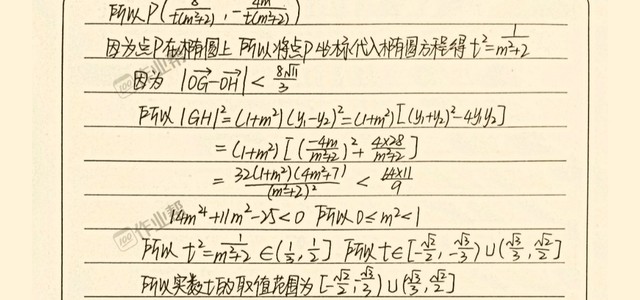 所以P(8/t(m²+2), -4m/t(m²+2))
因为点P在椭圆上 所以将点P坐标代入椭圆方程得t²=1/m²+2
因为 |OG-OH|<8√11/3
所以|GH|²=(1+m²)(y₁-y₂)²=(1+m²)[(y₁+y₂)²-4y₁y₂]
=(1+m²)[(-4m/m²+2)²+4×28/m²+2]
=32(1+m²)(4m²+7)/(m²+2)²<64×11/9
14m⁴+11m²-25<0 所以0≤m²<1
所以t²=1/m²+2∈(1/3,1/2] 所以t∈[-√2/2,-√3/3)∪(√3/3,√2/2]
所以实数t的取值范围为[-√2/2,-√3/3)∪(√3/3,√2/2]
作业帮
作业帮